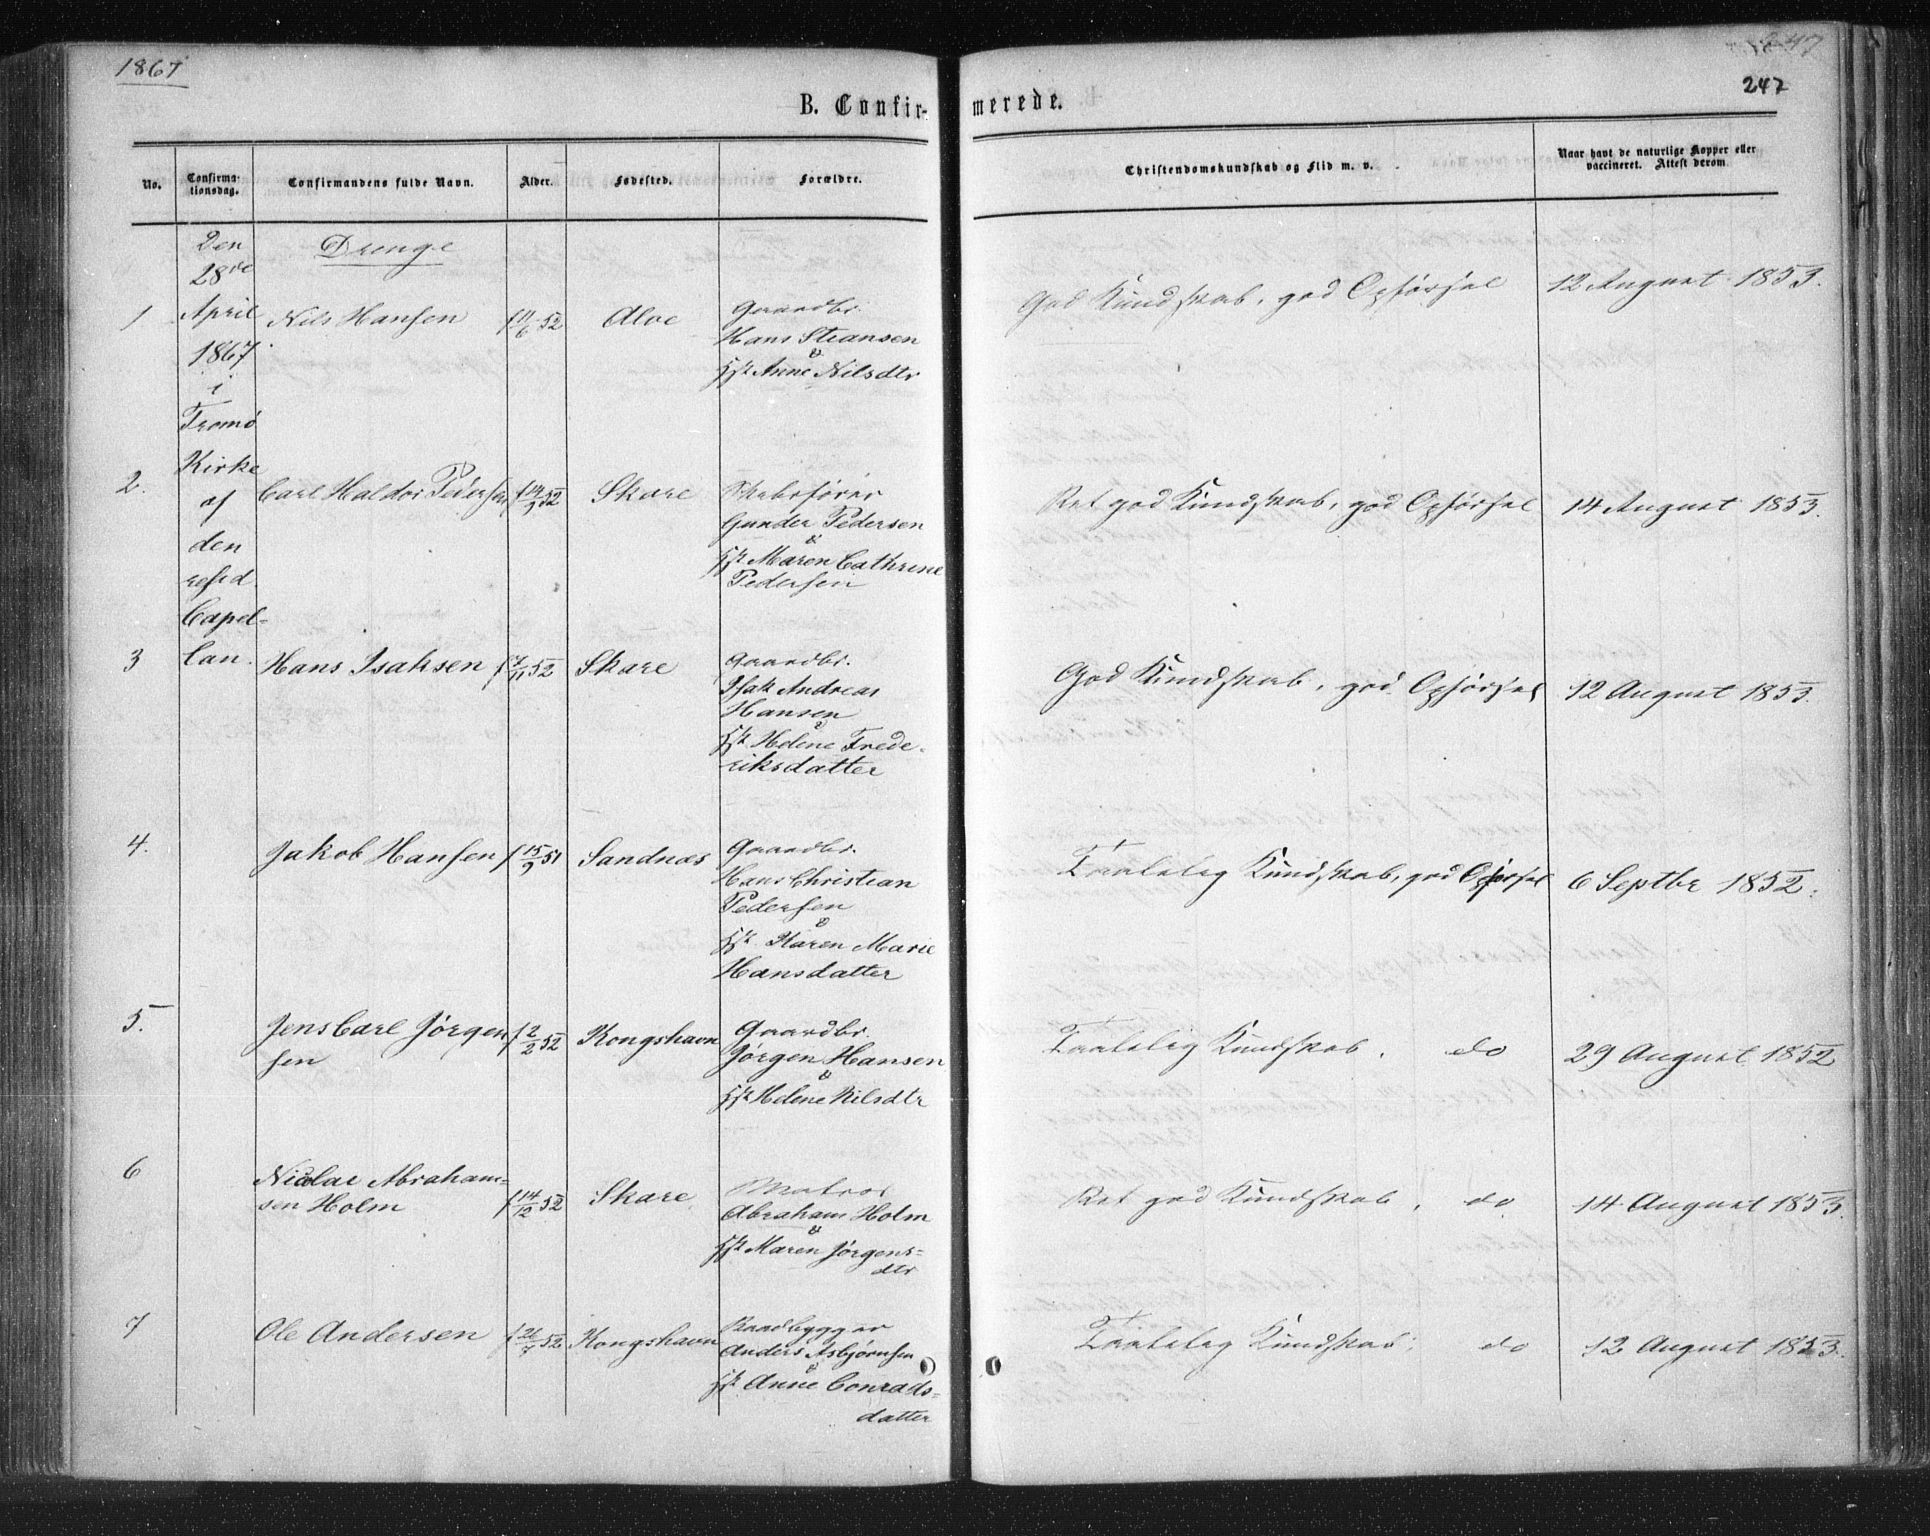 1867
247
247
B. Confir-merede.
No.
Confirma-
tionsdag.
Confirmandens fulde Navn.
Alder.
Fødested.
Forældre.
Christendomskundskab og Flid m. v.
Naar havt de naturlige Kopper eller
vaccineret. Attest derom.
Den
28de
April
1867
i
Tromø
Kirke
af
den
resid
Capel-
lan.
Drenge
1 Nils Hansen f 11/6 52 Alve
Gaardbr.
Hans Steansen
&
Hst Anne Nilsdtr
God Kundskab, god Opførsel 12 August 1853.
2. Carl Haldor Pedersen f 14/9 52 Skare
Skibsfører
Gunder Pedersen
&
Hst Maren Cathrine
Pedersen
Ret god Kundskab, god Opførsel 14 August 1853.
3 Hans Isaksen f 7/11 52 Skare
Gaardbr.
Isak Andreas
Hansen
&
Hst Helene Frede-
riksdatter
God Kundskab, god Opførsel 12 August 1853.
4. Jakob Hansen f 15/9 51 Sandnæs
Gaardbr.
Hans Christian
Pedersen
&
Hst. Karen Marie
Hansdatter
Taalelig Kundskab, god Opførsel 6 Septbr 1852.
5. Jens Carl Jørgen
sen f 2/2 52 Kongshavn
Gaardbr
Jørgen Hansen
&
Hst Helene Nilsdtr
Taalelig Kundskab. do 29 August 1852
6 Nicolai Abraham-
sen Holm f 14/12 52 Skare
Matros
Abraham Holm
&
Hst Maren Jørgens-
dtr
Ret god Kundskab, do 14 August 1853.
7 Ole Andersen f 26/7 52 Kongshavn
Baadbygger
Anders Asbjørnsen
&
Hst. Anne Conrads-
datter
Taalelig Kundskab; do 12 August 1853.